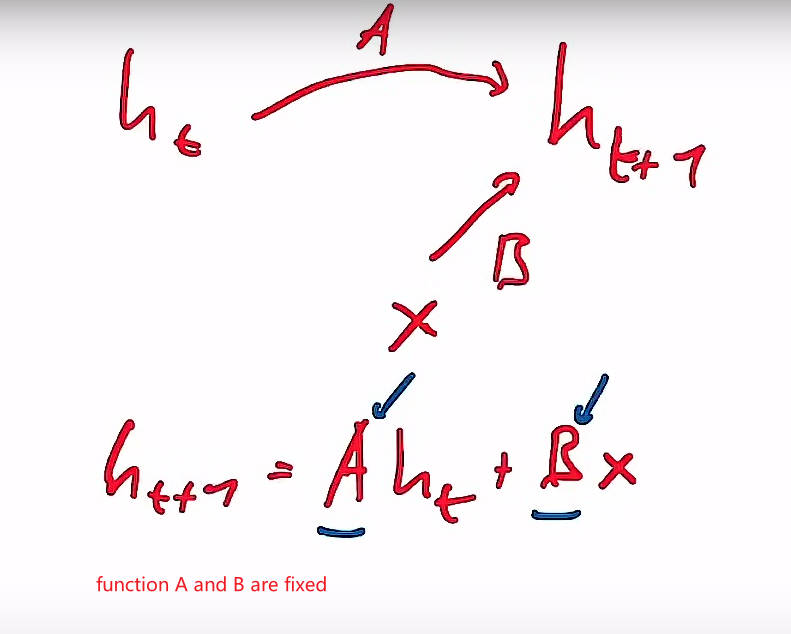 A
h_t
h_{t+1}
B
x
h_{t+1} = A h_t + B x
function A and B are fixed